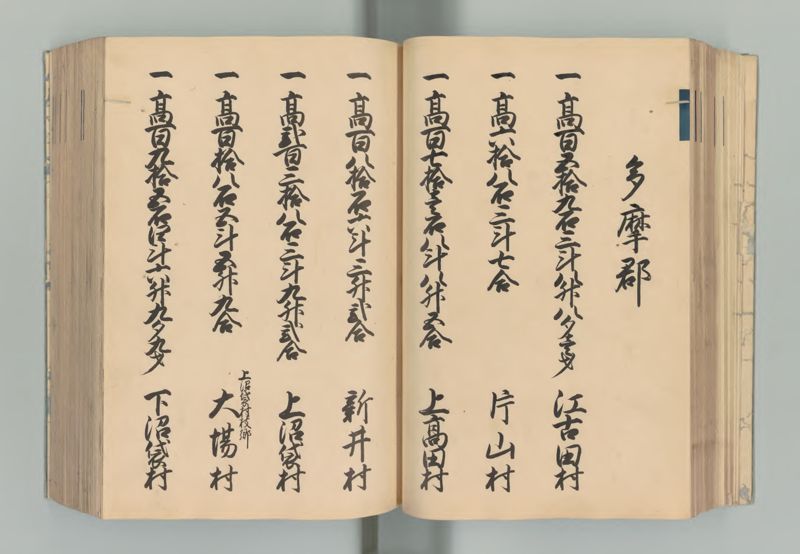 多摩郡
一高百五拾九石三斗八升八夕壱才 江古田村
一高六拾八石三斗七合 片山村
一高百七拾壱石八斗八升五合 上高田村
一高百八拾石六斗三升弐合 新井村
一高弐百三拾八石三斗九升弐合 上沼袋村
上沼袋村枝郷
一高百拾八石五斗五升九合 大場村
一高百九拾五石四斗六升九夕九才 下沼袋村